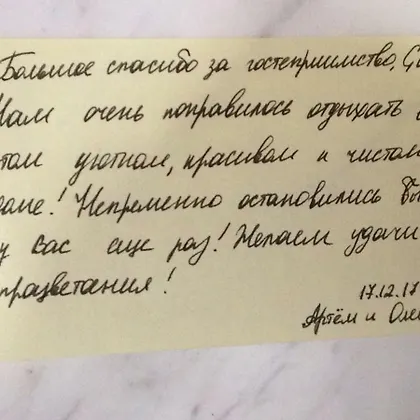 Большое спасибо за гостеприимство,
Нам очень понравилось отдыхать
этом уютном, красивом и чистом
доме! Непременно остановились
у вас еще раз! Желаем удачи
процветания!
17.12.17
Артём и